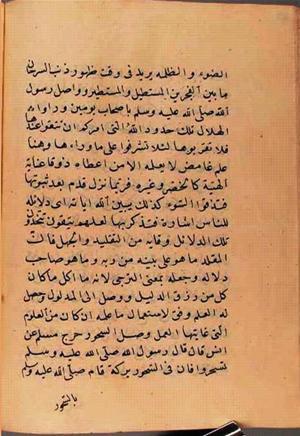 الضوء والظلمه يريد فى وقت ظهور ذنب السرحان
ما بين الفجرين المستطيل والمستطير وواصل رسول
الله صلى الله عليه وسلم باصحابه يومين وراوا
الهلال تلك حدود الله التى امركم ان تقفوا عندها
فلا تقربوها لئلا تشرفوا على ما وراءها وهنا
علم غامض لا يعلمه الا من اعطاه ذوقا عناية
الهية كالخضر وغيره فربما تزل قدم بعد ثبوتها
فتذوقوا السوء كذلك يبين الله اياته اى دلائله
للناس اشارة فتذكر بها لعلهم يتقون يتخذون
تلك الدلائل وقايه من التقليد والجهل فان
المقلد ما هو على بينه من ربه وما هو صاحب
دلاله وجعله بمعنى الترجى لانه ما كل ما كان
كل من رزق الدليل ووصل الى المدلول وحصل
له العلم وفق لاستعمال ما علمه ان كان من العلوم
التى غايتها العمل وصل السحور خرج مسلم عن
انس قال قال رسول الله صلى الله عليه وسلم
تسحروا فان فى السحور بركة قام صلى الله عليه وسلم
بالسحور